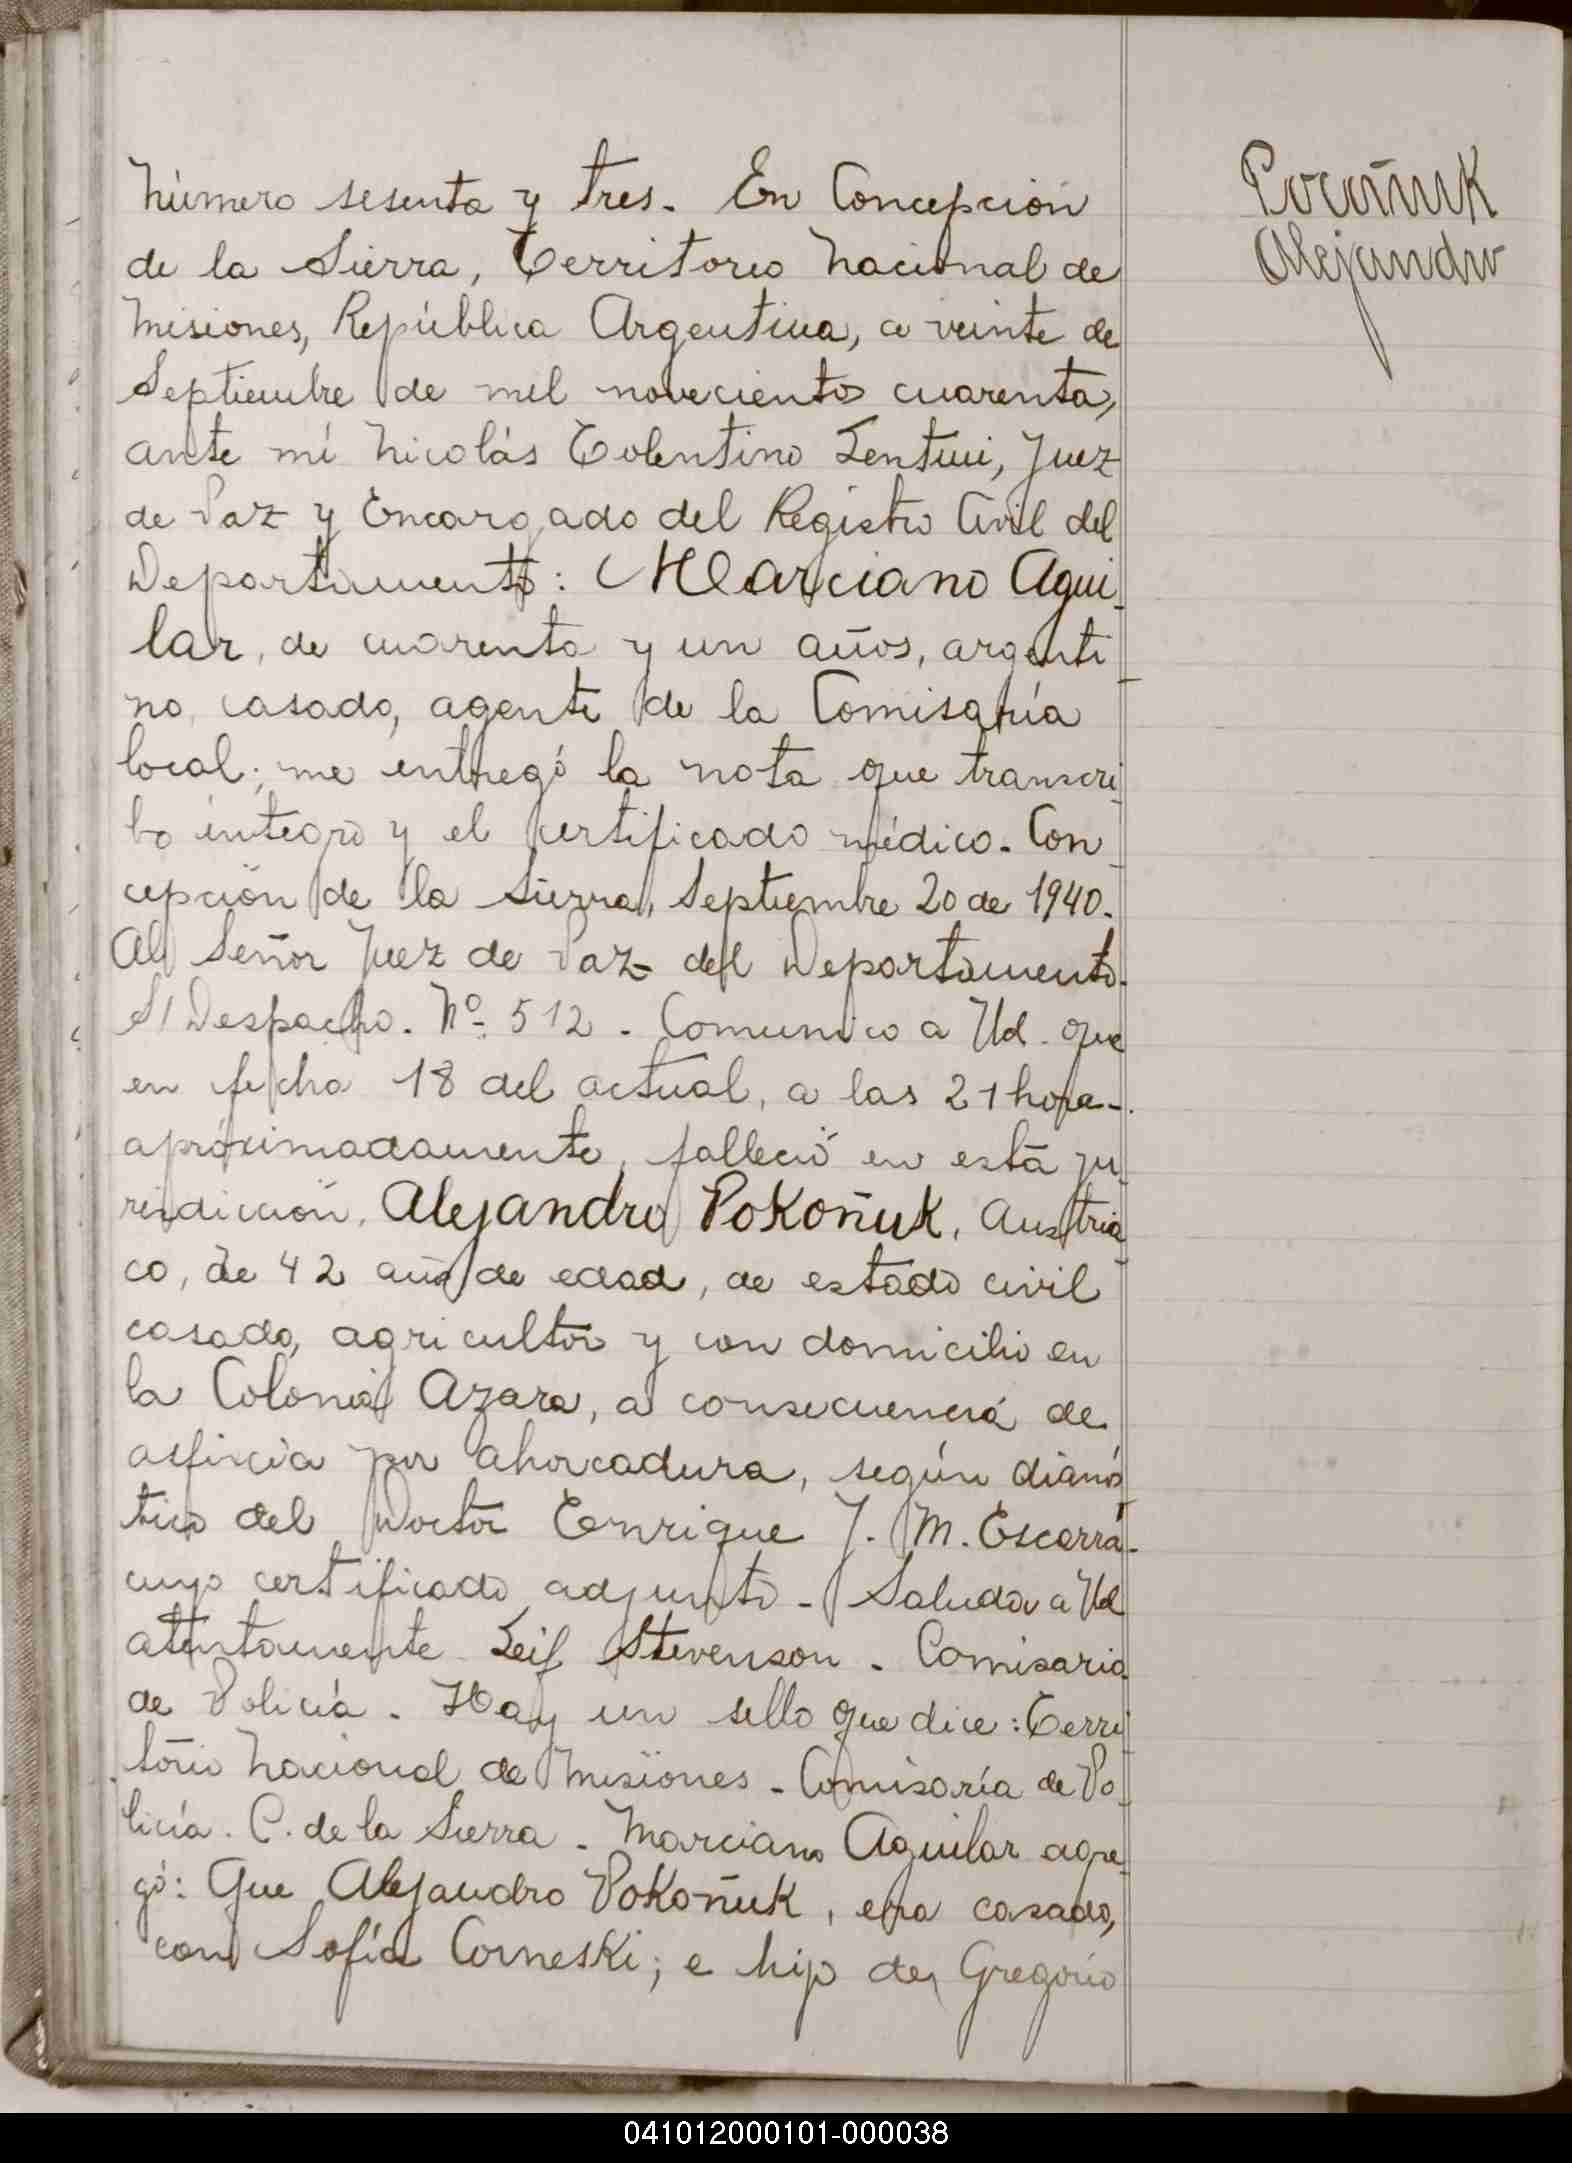 Número sesenta y tres. En Concepción
de la Sierra, Territorio Nacional de
Misiones, República Argentina, a veinte de
Septiembre de mil novecientos cuarenta,
ante mí Nicolás Tolentino Lentini, Juez
de Paz y Encargado del Registro Civil del
Departamento: Marciano Agui-
lar, de cuarenta y un años, argenti-
no, casado, agente de la Comisaría
local; me entregó la nota que transcri-
bo íntegro y el certificado médico. Con-
cepción de la Sierra, Septiembre 20 de 1940.
Al Señor Juez de Paz del Departamento.
S/ Despacho. Nº 512. Comunico a Ud. que
en fecha 18 del actual, a las 21 hora-
apróximadamente, falleció en esta ju-
risdicción, Alejandro Pokoñuk, Austria-
co, de 42 años de edad, de estado civil
casado, agricultor y con domicilio en
la Colonia Azara, a consecuencia de
asfixia por ahorcadura, según dianós-
tico del Doctor Enrique J. M. Escarrá-
cuyo certificado adjunto. Saluda a Ud
atentamente Leif Stevenson. Comisario
de Policía. Hay un sello que dice: Terri-
torio Nacional de Misiones. Comisaría de Po-
licía. C. de la Sierra. Marciano Aguilar agre-
gó: Que Alejandro Pokoñuk, era casado,
con Sofía Corneski; e hijo de, Gregorio
Pocoñuk
Alejandro
041012000101-000038